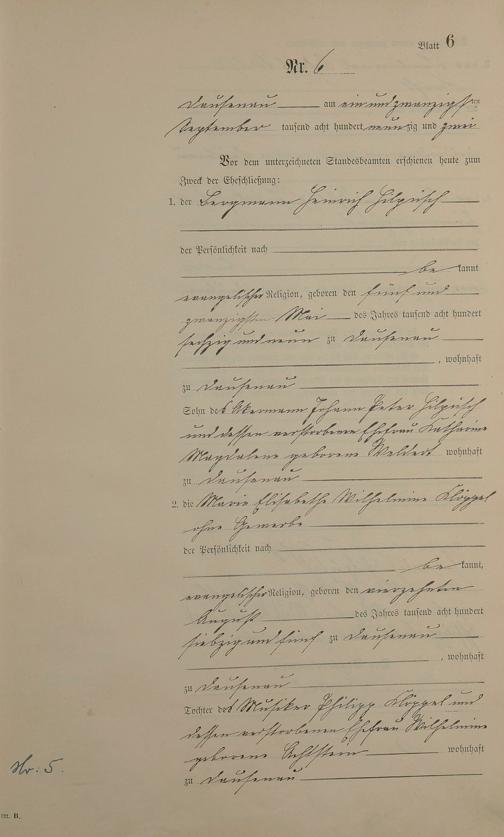 Blatt 6
Nr. 6
Dausenau am einundzwanzigsten
September tausend acht hundert neunzig und zwei
Vor dem unterzeichneten Standesbeamten erschienen heute zum
Zweck der Eheschließung:
1. der Bergmann Heinrich Hilpüsch
der Persönlichkeit nach
be kannt
evangelischer Religion, geboren den fünf und
zwanzigsten Mai des Jahres tausend acht hundert
sechzig und neun zu Dausenau
, wohnhaft
zu Dausenau
Sohn des Akermann Johann Peter Hilpüsch
und dessen verstorbener Ehefrau Katharine
Magdalene geborene wohnhaft
zu Dausenau
2. die Marie Elisabethe Wilhelmine Klöppel
ohne Gewerbe
der Persönlichkeit nach
be kannt,
evangelischer Religion, geboren den vierzehnten
August des Jahres tausend acht hundert
siebzig und fünf zu Dausenau
, wohnhaft
zu Dausenau
Tochter des Musiker Philipp Klöppel und
dessen verstorbenen Ehefrau Wilhelmine
geborene wohnhaft
zu Dausenau
Nr: 5.
B.